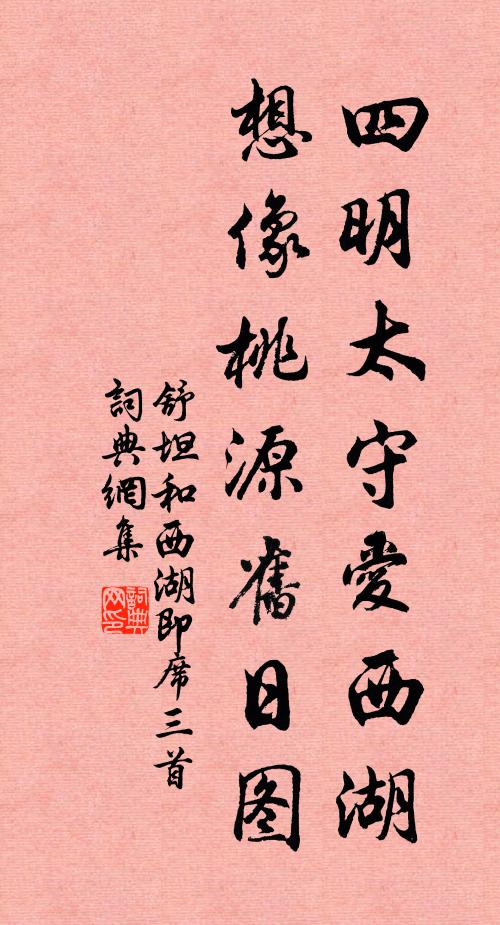 四明太守愛西湖
想像桃源舊日图
舒坦和西湖即席三首
詞典網集
詞典网印